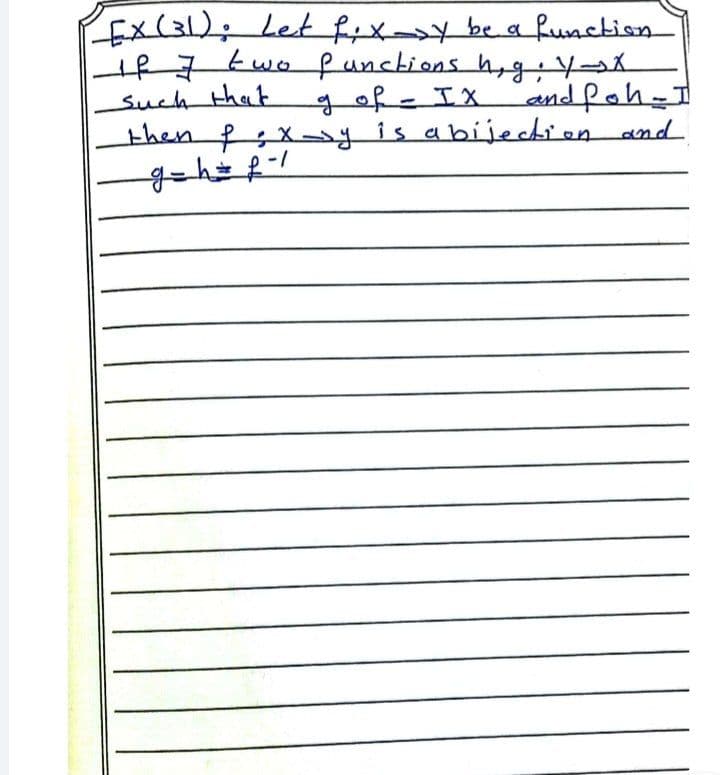 Ex(31): Let f: x→y be a function
if ∃ two functions h,g: y→x
such that g of = Ix and foh = I
then f: x→y is a bijection and
g = h = f-1